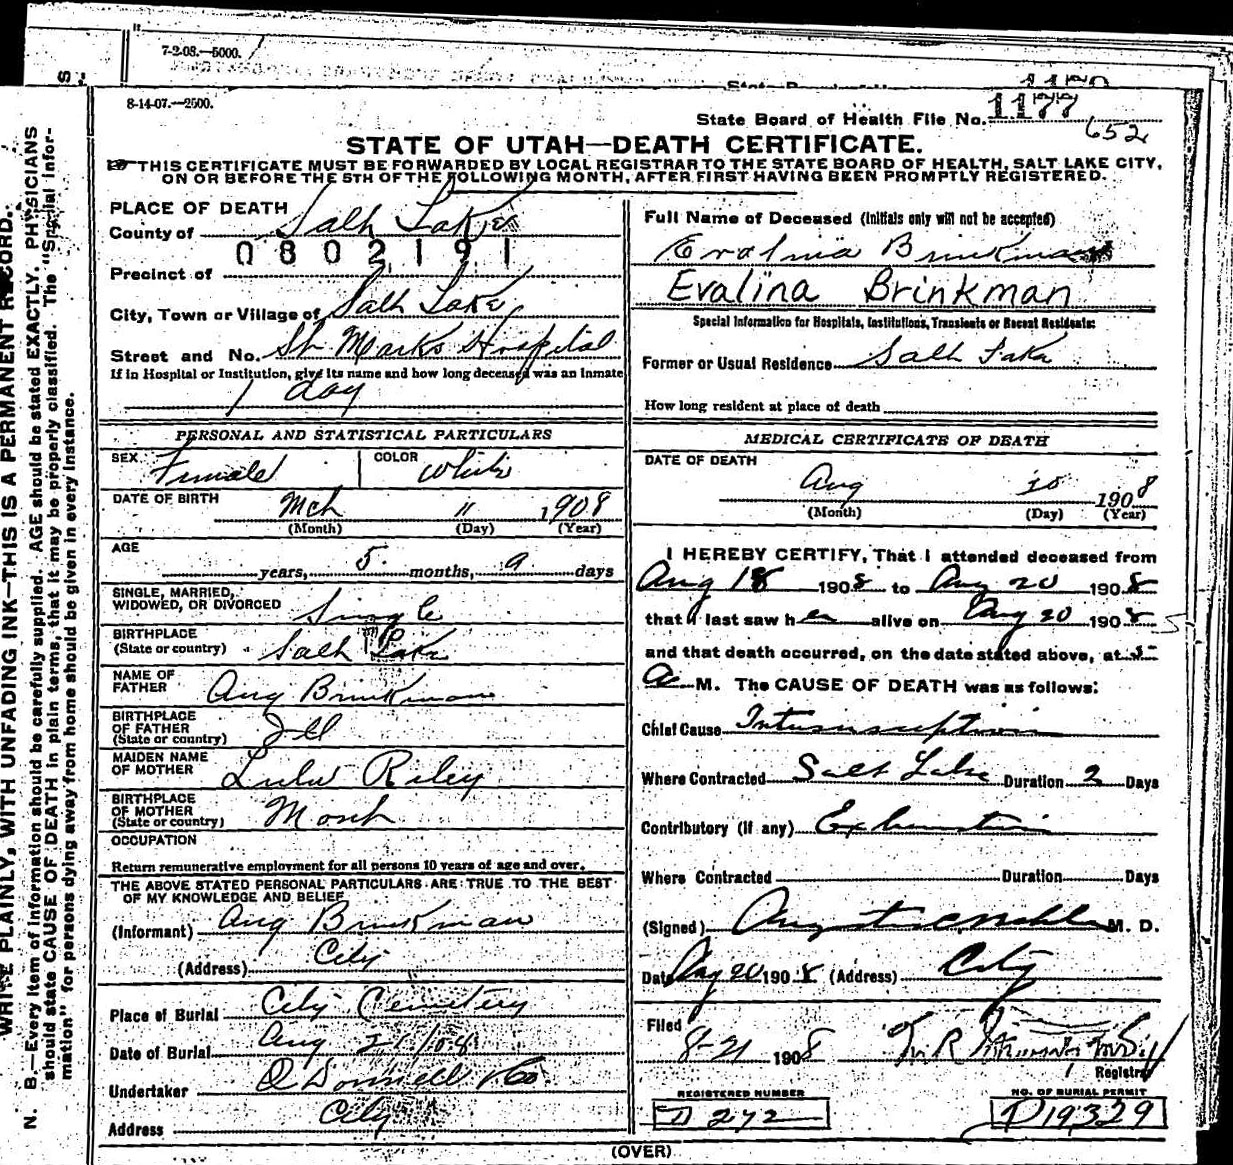 7-2-08.—5000.
8-14-07.—2500.
State Board of Health File No. 1177
652
STATE OF UTAH—DEATH CERTIFICATE.
THIS CERTIFICATE MUST BE FORWARDED BY LOCAL REGISTRAR TO THE STATE BOARD OF HEALTH, SALT LAKE CITY,
ON OR BEFORE THE 5TH OF THE FOLLOWING MONTH, AFTER FIRST HAVING BEEN PROMPTLY REGISTERED.
PLACE OF DEATH
County of Salt Lake
0802191
Precinct of
City, Town or Village of Salt Lake
Street and No. St Marks Hospital
If in Hospital or Institution, give its name and how long deceased was an inmate
1 day
PERSONAL AND STATISTICAL PARTICULARS
SEX Female COLOR White
DATE OF BIRTH Mch 11 1908
(Month) (Day) (Year)
AGE
years, 5 months, 9 days
SINGLE, MARRIED,
WIDOWED, OR DIVORCED Single
BIRTHPLACE
(State or country) Salt Lake
NAME OF
FATHER Aug Brinkman
BIRTHPLACE
OF FATHER
(State or country) Ill
MAIDEN NAME
OF MOTHER Lulu Riley
BIRTHPLACE
OF MOTHER
(State or country)
OCCUPATION
Return remunerative employment for all persons 10 years of age and over.
THE ABOVE STATED PERSONAL PARTICULARS ARE TRUE TO THE BEST
OF MY KNOWLEDGE AND BELIEF
(Informant) Aug Brinkman
(Address) City
Place of Burial City Cemetery
Date of Burial Aug 21/08
Undertaker O Donnell & Co
Address City
Full Name of Deceased (Initials only will not be accepted)
Evalina Brinkman
Evalina Brinkman
Special Information for Hospitals, Institutions, Transients or Recent Residents:
Former or Usual Residence Salt Lake
How long resident at place of death
MEDICAL CERTIFICATE OF DEATH
DATE OF DEATH
Aug 20 1908
(Month) (Day) (Year)
I HEREBY CERTIFY, That I attended deceased from
Aug 18 1908 to Aug 20 1908
that I last saw her alive on Aug 20 1908
and that death occurred, on the date stated above, at 5
A M. The CAUSE OF DEATH was as follows:
Chief Cause Intussusception
Where Contracted Salt Lake Duration 2 Days
Contributory (if any) Exhaustion
Where Contracted Duration Days
(Signed) M. D.
Date Aug 20 1908 (Address) City
Filed
8-21 1908
Registrar
REGISTERED NUMBER
D 272
NO. OF BURIAL PERMIT
D19329
(OVER)
WRITE PLAINLY, WITH UNFADING INK—THIS IS A PERMANENT RECORD.
N. B.—Every item of information should be carefully supplied. AGE should be stated EXACTLY. PHYSICIANS
should state CAUSE OF DEATH in plain terms, that it may be properly classified. The "Special Infor-
mation" for persons dying away from home should be given in every instance.